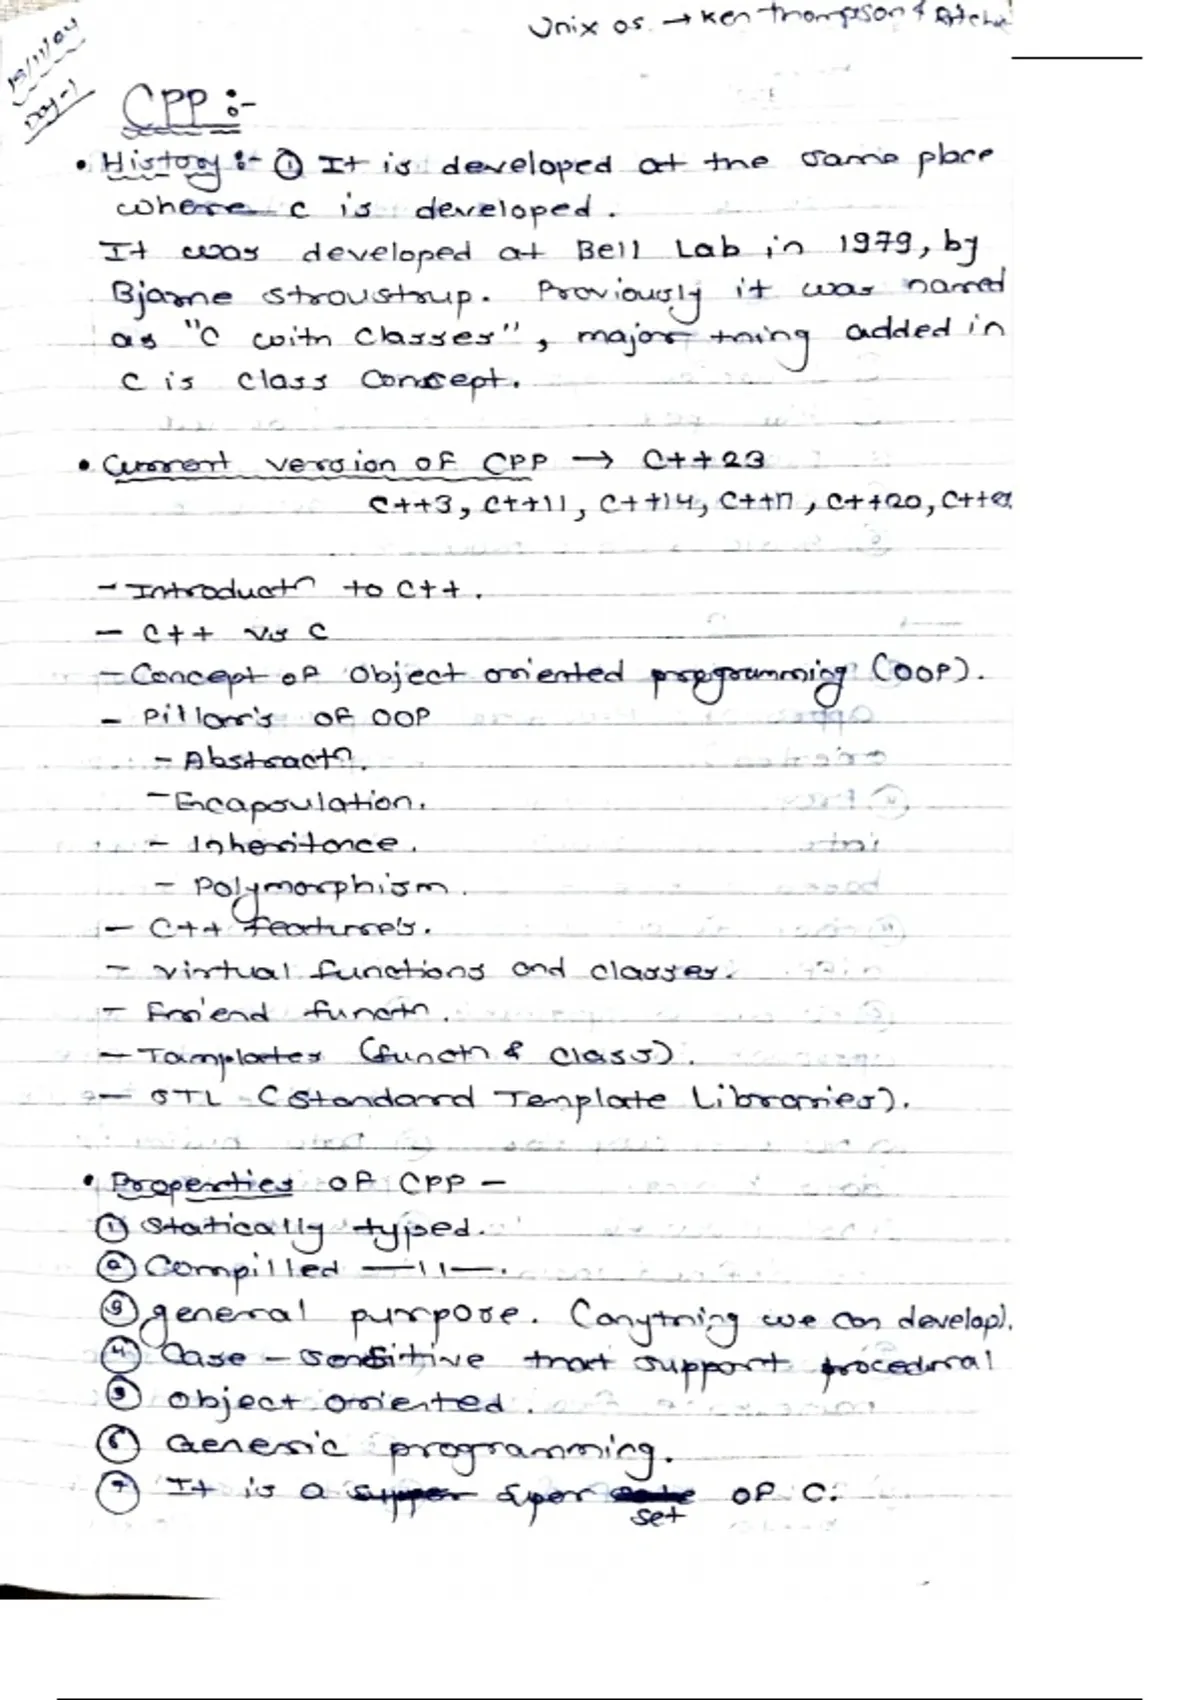 Unix os. → Ken thompson & Ritchi
15/11/04
Day-1
CPP :-
• History :- ① It is developed at the same place
where c is developed.
It was developed at Bell Lab in 1979, by
Bjarne stroustrup. Previously it was named
as "C with Classes", major thing added in
C is class concept.
• Current version of CPP → C++23
C++3, C++11, C++14, C++17, C++20, C++2
- Introductn to C++.
- C++ vs C
- Concept of Object oriented programming (OOP).
- Pillar's of OOP
- Abstractn.
- Encapsulation.
- Inheritance.
- Polymorphism.
- C++ feature's.
- virtual functions and classes.
- Friend functn.
- Tamplates (functn & class).
- STL (Standard Template Libraries).
• Properties of CPP -
① Statically typed.
② Compilled —11—.
③ general purpose. (anything we can develop).
④ Case - sensitive that support procedural
⑤ object oriented.
⑥ Generic programming.
⑦ It is a super set of C.